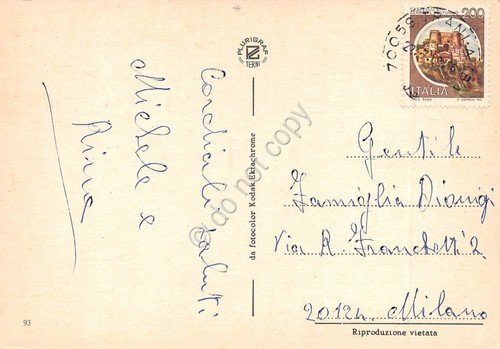 Cordiali saluti
Michele e
Rina
PLURIGRAF
TERNI
da fotocolor Kodak Ektachrome
do not copy
200
ITALIA
70059
Gentile
Famiglia Dionigi
Via R. Franchetti 2
20124 Milano
Riproduzione vietata
93